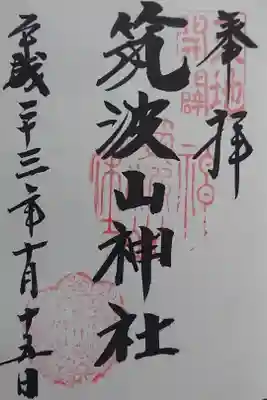 奉拝
天地開闢
筑波山神社
平成二十三年十月十五日